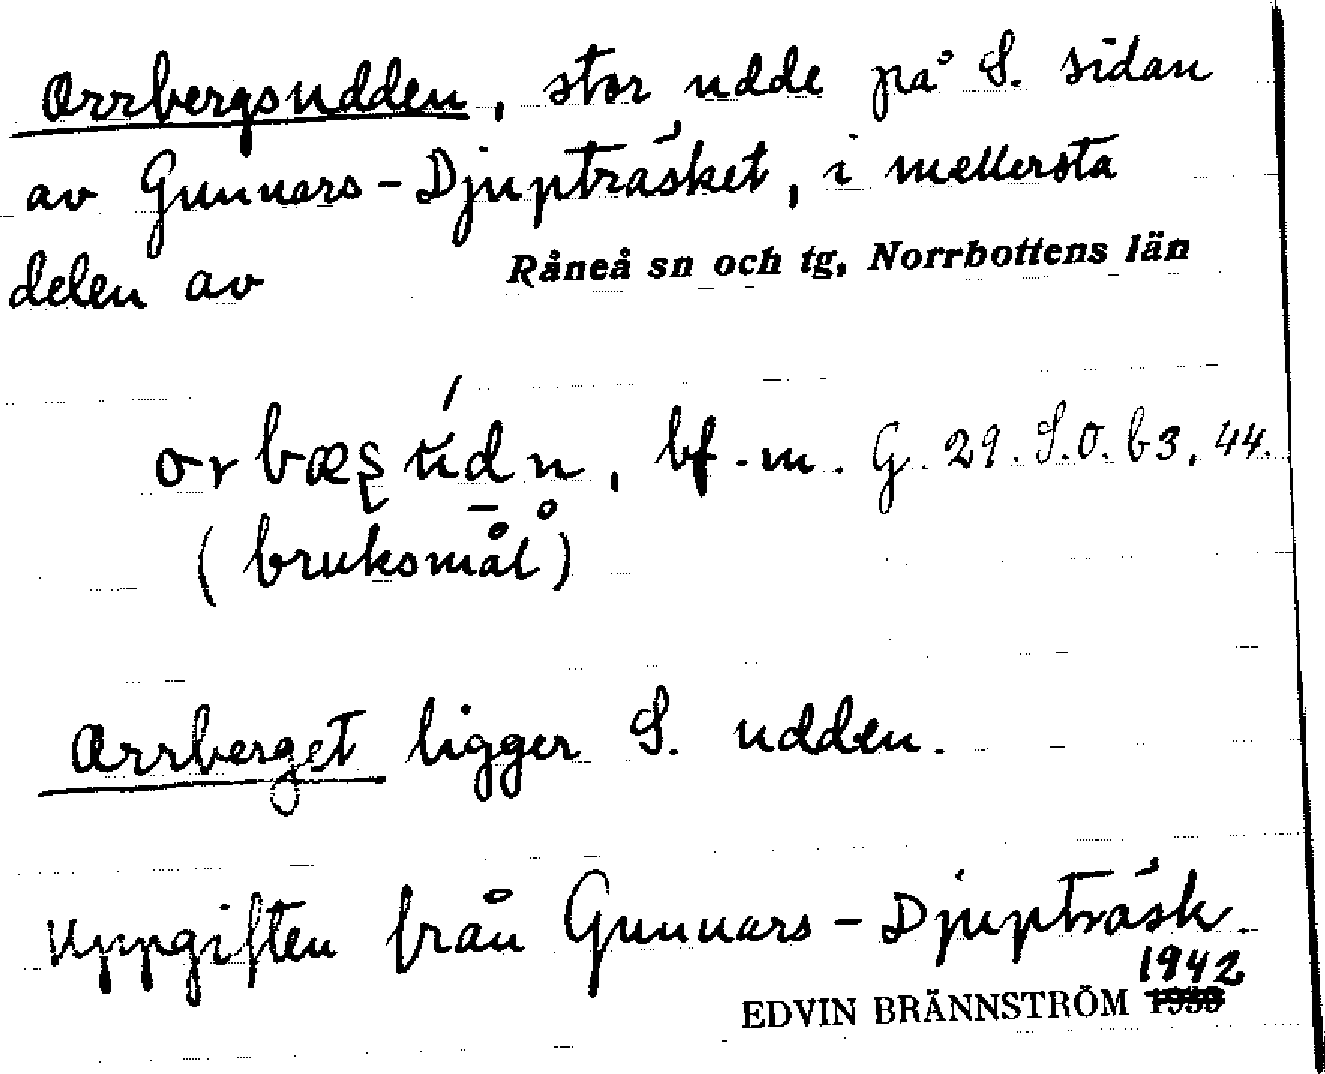 Orrbergsudden, stor udde på S. sidan
av Gunnars-Djupträsket, i mellersta
delen av Råneå sn och tg, Norrbottens län
bf.m. G. 29. S.O. b3, 44.
(bruksmål)
Orrberget ligger S. udden.
Uppgiften från Gunnars-Djupträsk.
1942
EDVIN BRÄNNSTRÖM 1930